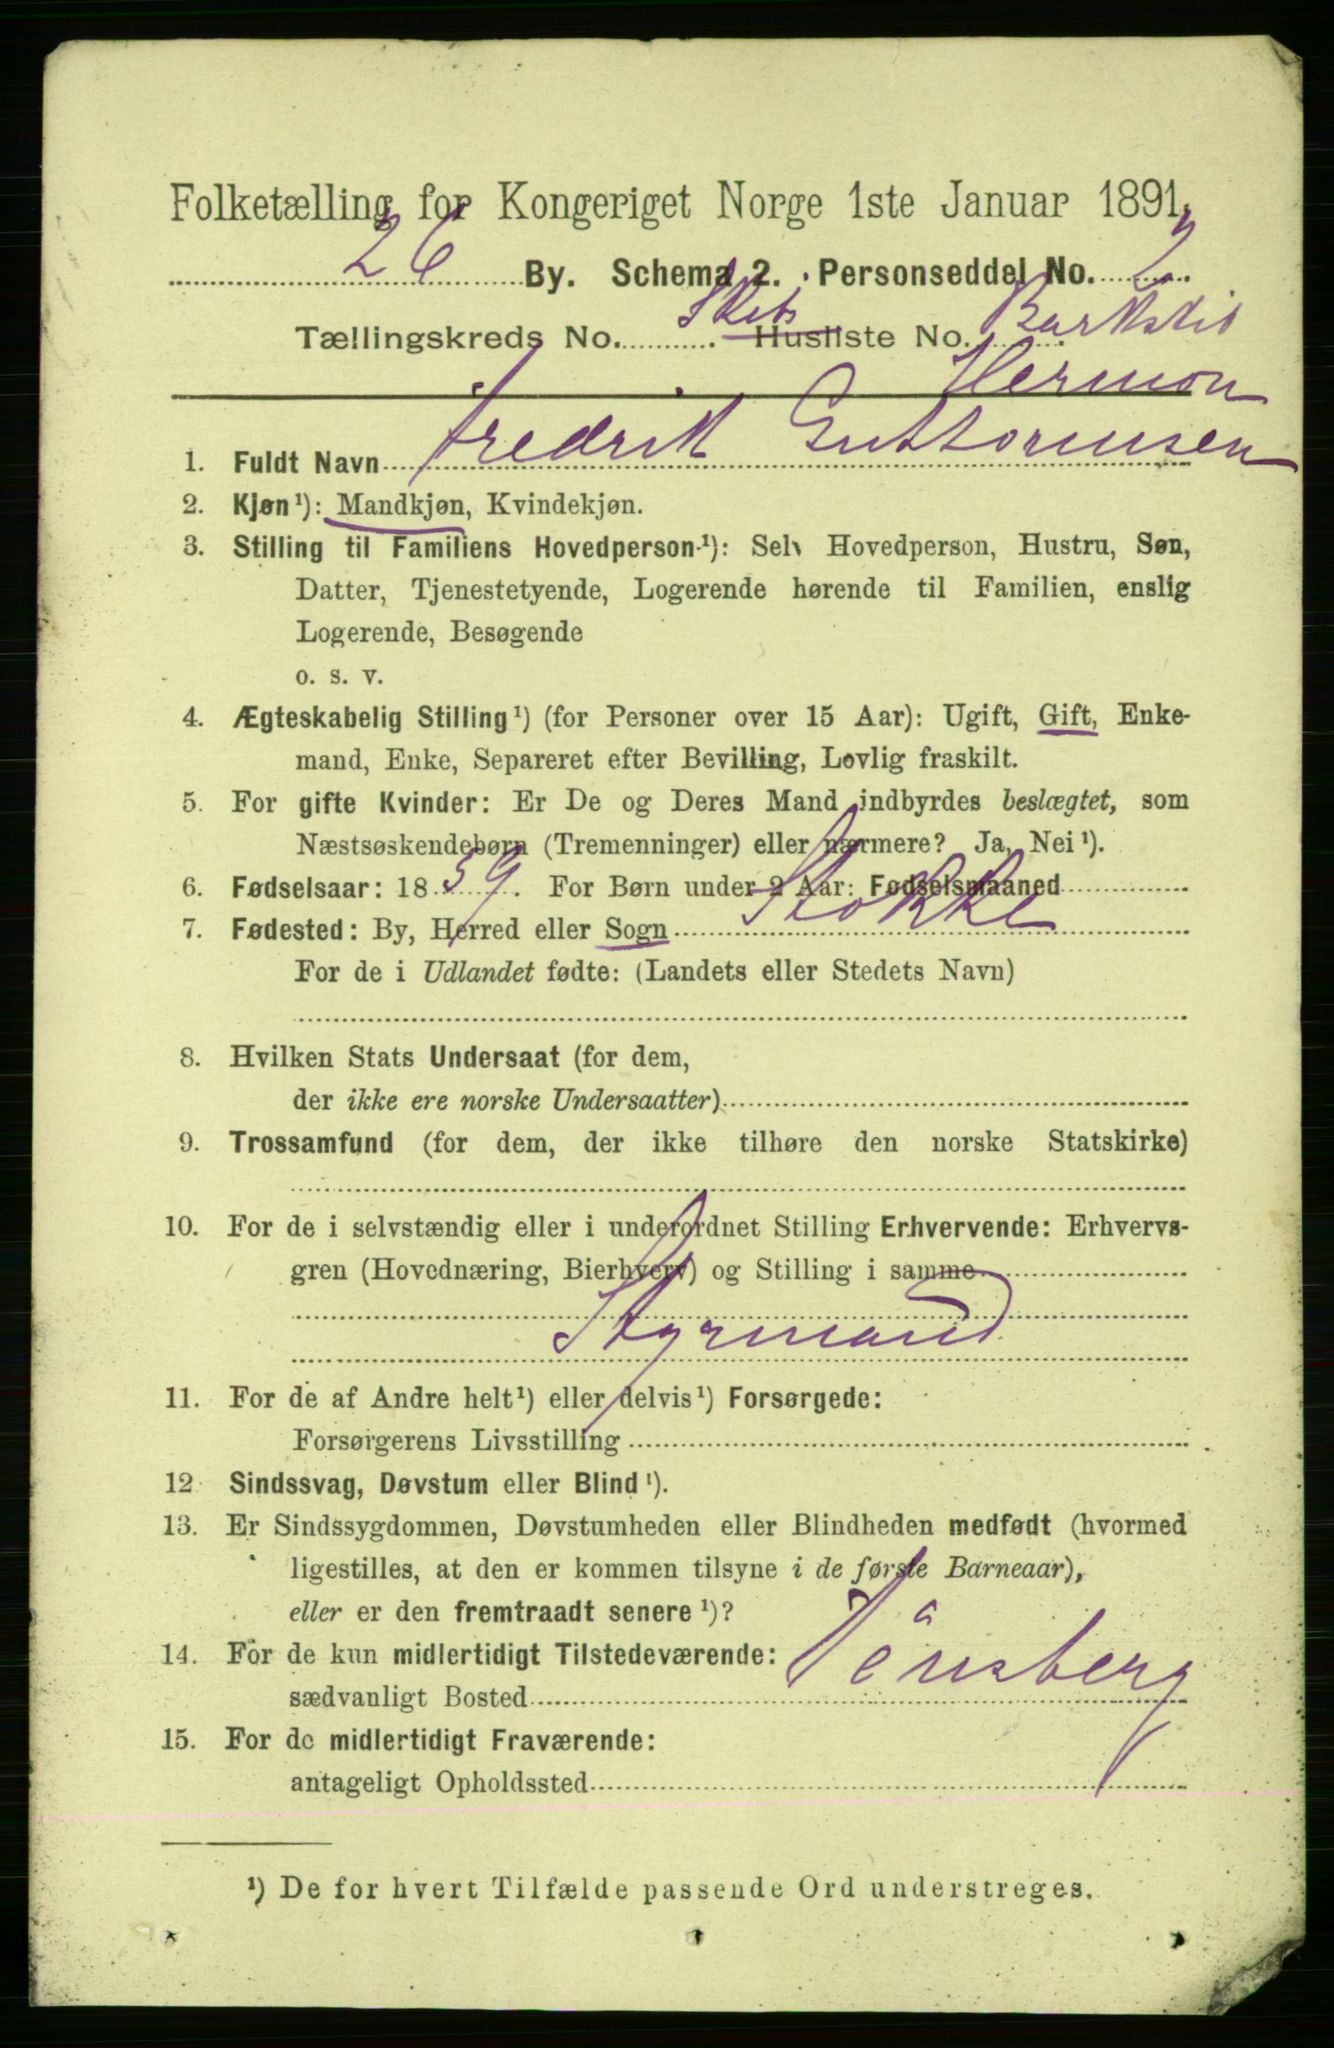 Folketælling for Kongeriget Norge 1ste Januar 1891.
26 By. Schema 2. Personseddel No. 2
Tællingskreds No. Skibs Husliste No. Barkskib
Hermon
1. Fuldt Navn Fredrik Guttormsen
2. Kjøn¹): Mandkjøn, Kvindekjøn.
3. Stilling til Familiens Hovedperson¹): Selv Hovedperson, Hustru, Søn,
Datter, Tjenestetyende, Logerende hørende til Familien, enslig
Logerende, Besøgende
o. s. v.
4. Ægteskabelig Stilling¹) (for Personer over 15 Aar): Ugift, Gift, Enke-
mand, Enke, Separeret efter Bevilling, Lovlig fraskilt.
5. For gifte Kvinder: Er De og Deres Mand indbyrdes beslægtet, som
Næstsøskendebørn (Tremenninger) eller nærmere? Ja, Nei¹).
6. Fødselsaar: 1859. For Børn under 2 Aar: Fødselsmaaned
7. Fødested: By, Herred eller Sogn Stokke
For de i Udlandet fødte: (Landets eller Stedets Navn)
8. Hvilken Stats Undersaat (for dem,
der ikke ere norske Undersaatter)
9. Trossamfund (for dem, der ikke tilhøre den norske Statskirke)
10. For de i selvstændig eller i underordnet Stilling Erhvervende: Erhvervs-
gren (Hovednæring, Bierhverv) og Stilling i samme
Styrmand
11. For de af Andre helt¹) eller delvis¹) Forsørgede:
Forsørgerens Livsstilling
12 Sindssvag, Døvstum eller Blind¹).
13. Er Sindssygdommen, Døvstumheden eller Blindheden medfødt (hvormed
ligestilles, at den er kommen tilsyne i de første Barneaar),
eller er den fremtraadt senere¹)?
14. For de kun midlertidigt Tilstedeværende:
sædvanligt Bosted Tönsberg
15. For de midlertidigt Fraværende:
antageligt Opholdssted
¹) De for hvert Tilfælde passende Ord understreges.